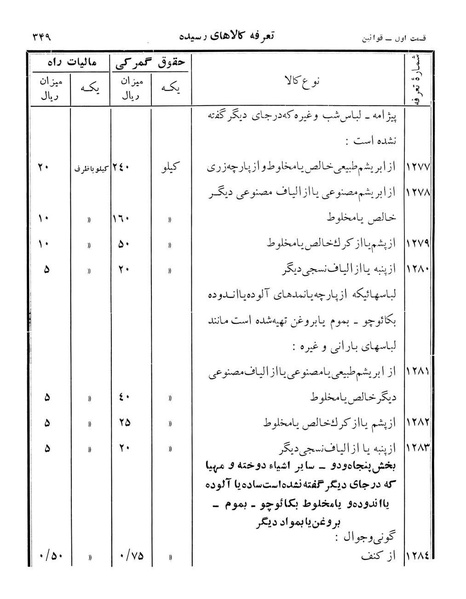 قسمت اول ــ قوانین تعرفه کالاهای رسیده ۳۴۹
شمارهٔ تعرفه نوع کالا حقوق گمرکی مالیات راه
یکه میزان ریال یکه میزان ریال
پیژامه ـ لباس شب و غیره که درجای دیگر گفته
نشده است :
۱۲۷۷ از ابریشم طبیعی خالص یا مخلوط و از پارچه زری کیلو ۲۴۰ کیلو با ظرف ۲۰
۱۲۷۸ از ابریشم مصنوعی یا از الیاف مصنوعی دیگر
خالص یا مخلوط » ۱۶۰ » ۱۰
۱۲۷۹ از پشم یا از کرك خالص یا مخلوط » ۵۰ » ۱۰
۱۲۸۰ از پنبه یا از الیاف نسجی دیگر » ۲۰ » ۵
لباسهائیکه از پارچه یا نمدهای آلوده یا اندوده
بکائوچو ـ بموم یا بروغن تهیه شده است مانند
لباسهای بارانی و غیره :
۱۲۸۱ از ابریشم طبیعی یا مصنوعی یا از الیاف مصنوعی
دیگر خالص یا مخلوط » ۴۰ » ۵
۱۲۸۲ از پشم یا از کرك خالص یا مخلوط » ۲۵ » ۵
۱۲۸۳ از پنبه یا از الیاف نسجی دیگر » ۲۰ » ۵
بخش پنجاه و دو ــ سایر اشیاء دوخته و مهیا
که درجای دیگر گفته نشده است ساده یا آلوده
یا اندوده و یا مخلوط بکائوچو ــ بموم ــ
بروغن یا بمواد دیگر
گونی و جوال :
۱۲۸۴ از کنف » ۰/۷۵ » ۰/۵۰